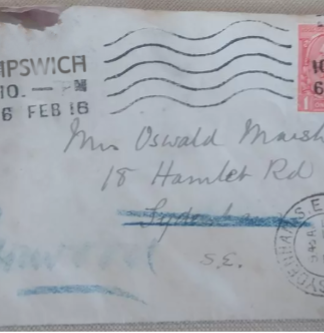 IPSWICH
10. — PM
6 FEB 16
10
6
1
Mrs Oswald Marsh
18 Hamlet Rd
Sydenham
S.E.
SYDENHAM.S.E.